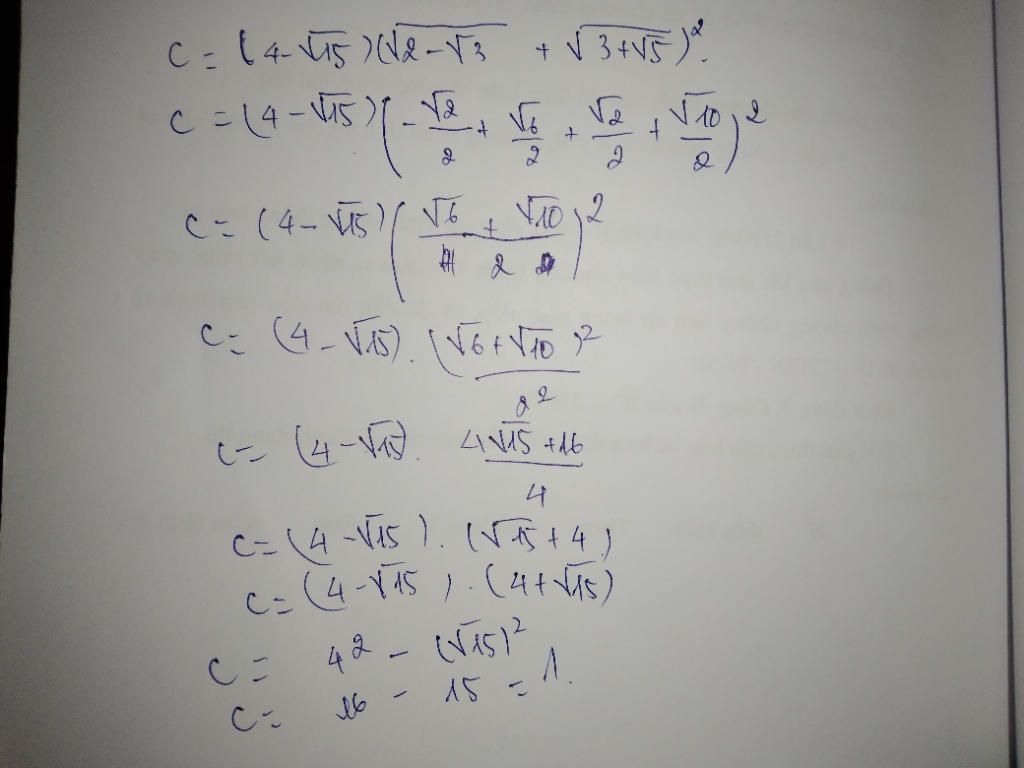 C = (4-√15)(√(2-√3) + √(3+√5))².
C = (4-√15)(-√2/2 + √6/2 + √2/2 + √10/2)²
C = (4-√15)((√6 + √10)/2)²
C = (4-√15).(√6+√10)²/2²
C = (4-√15). (4√15+16)/4
C = (4-√15).(√15+4)
C = (4-√15).(4+√15)
C = 4² - (√15)²
C = 16 - 15 = 1.